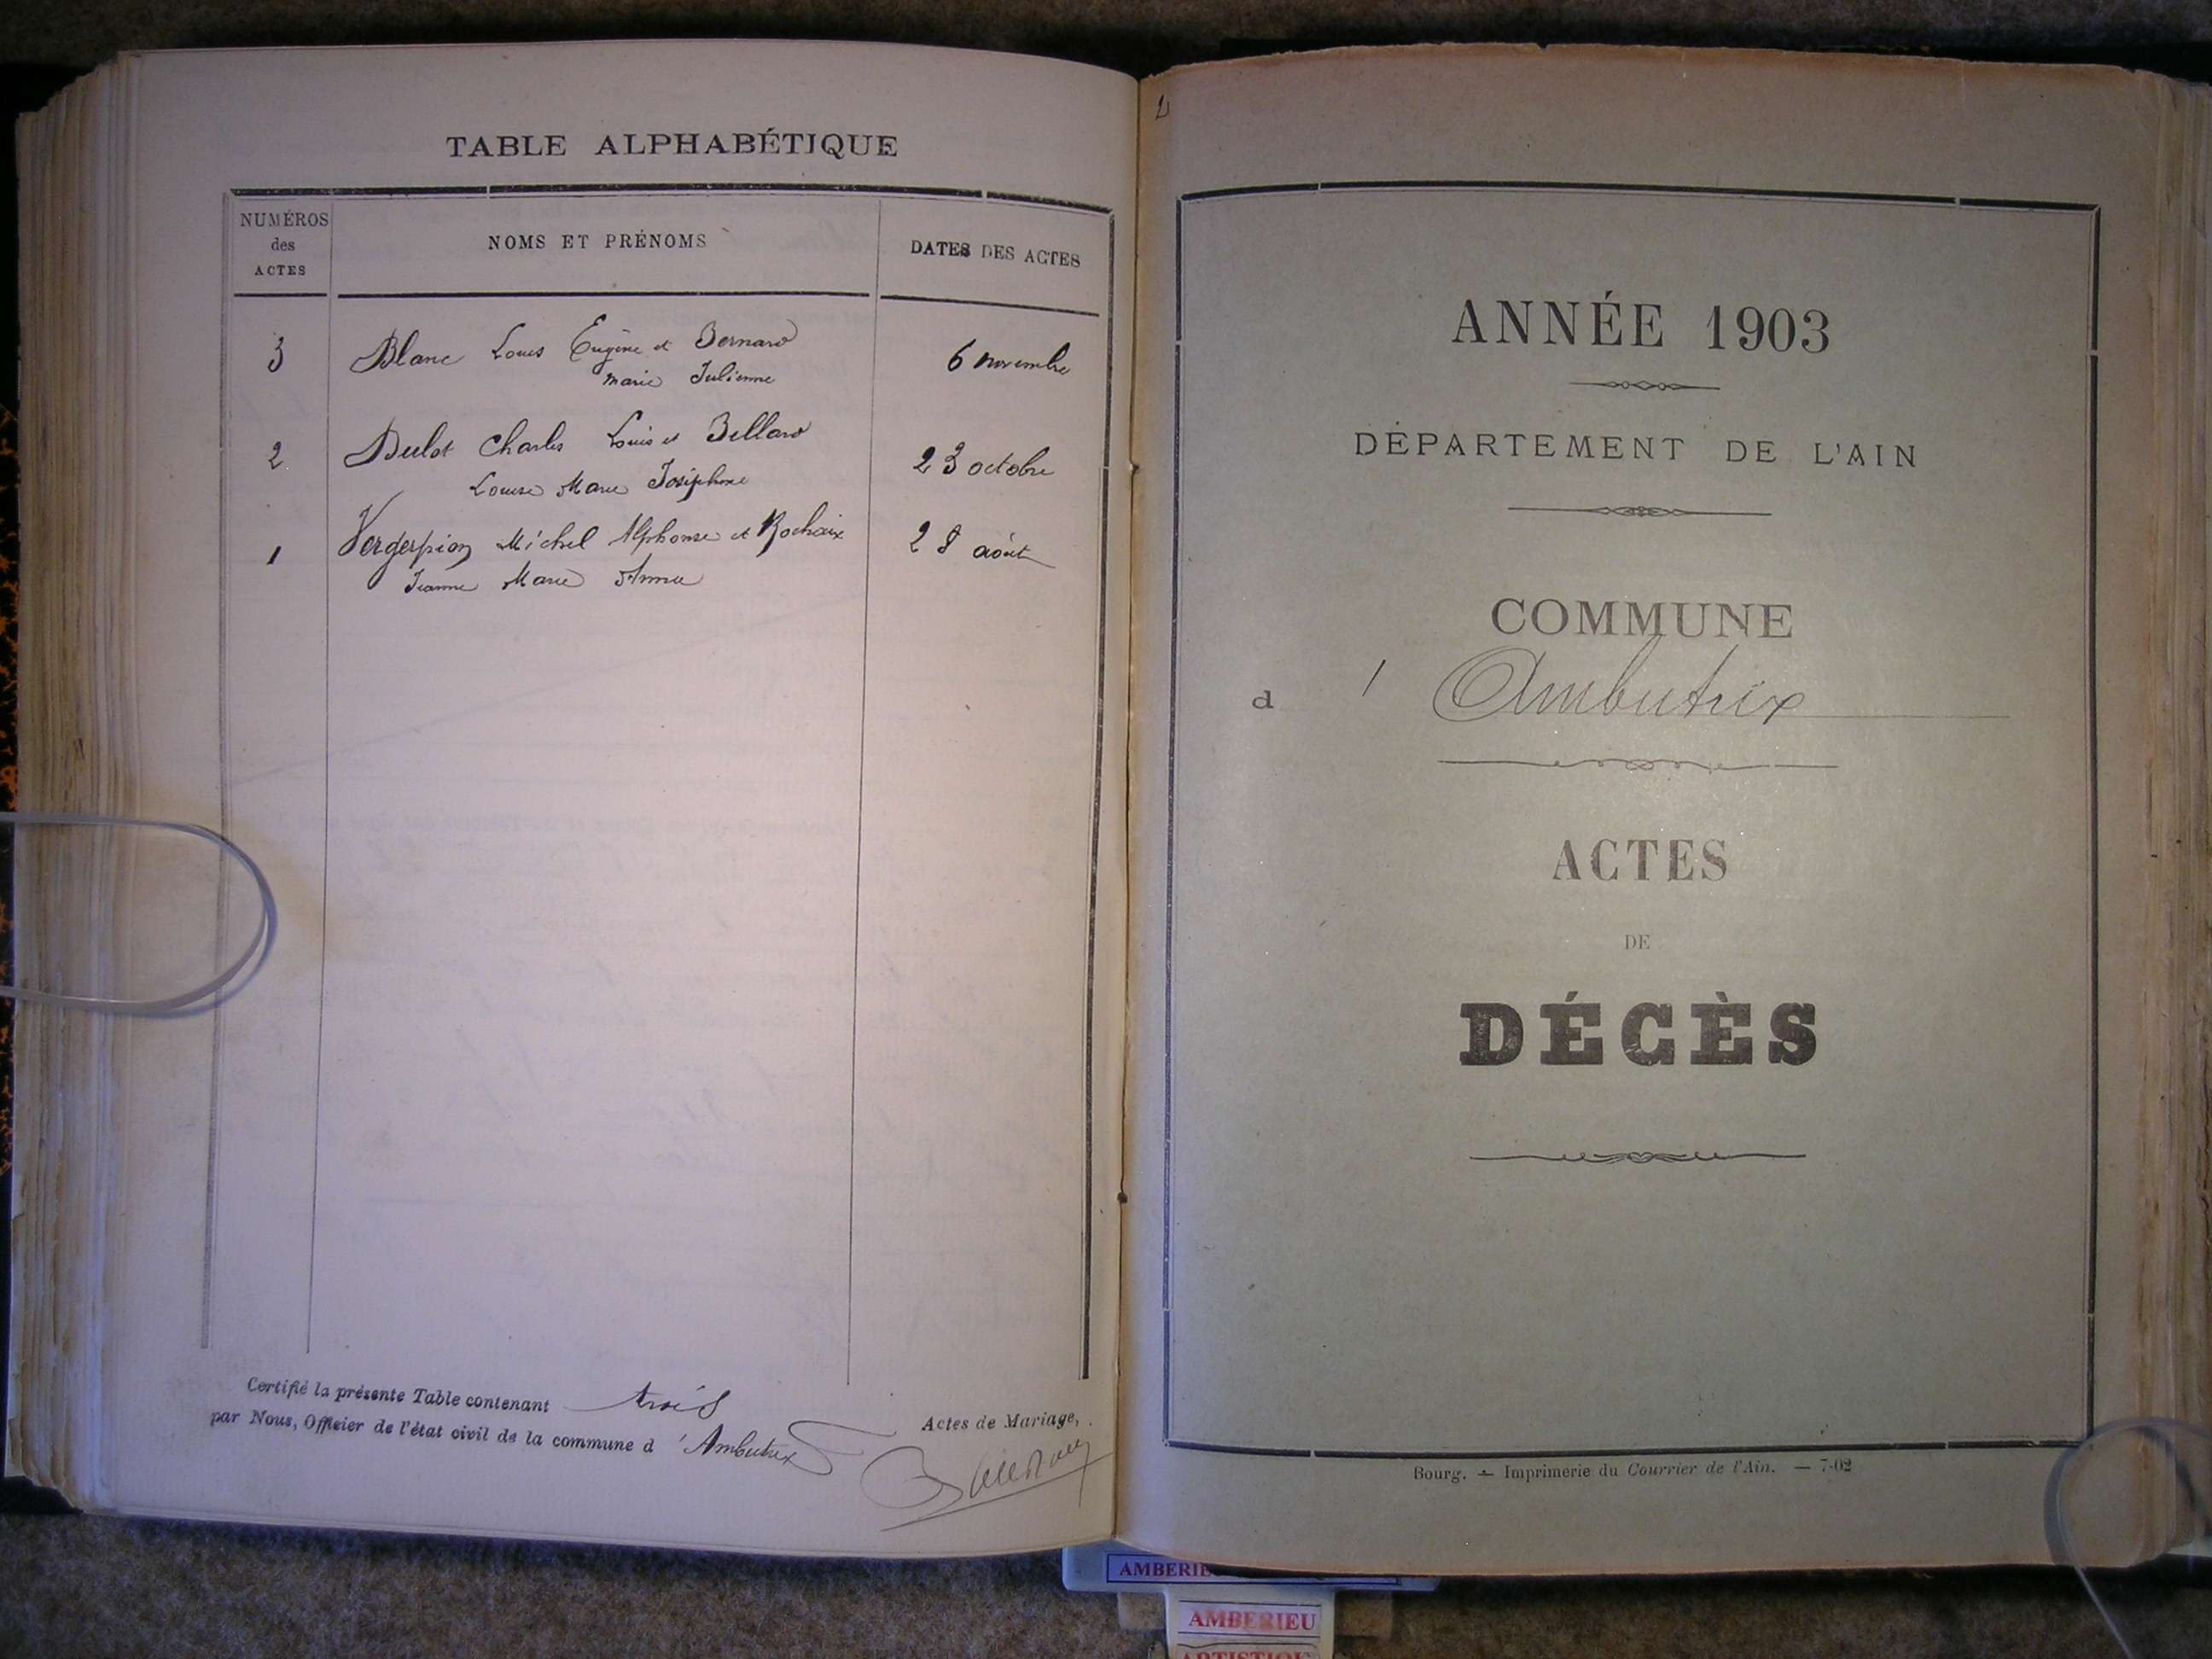 TABLE ALPHABÉTIQUE
NUMÉROS
des
ACTES
NOMS ET PRÉNOMS
DATES DES ACTES
3 Blanc Louis Eugène et Bernard 6 novembre
Marie Julienne
2 Dulot Charles Louis et Billard 23 octobre
Louise Marie Joséphine
1 Vergerpion Michel Alphonse et Rochaix 28 août
Jeanne Marie Anna
Certifié la présente Table contenant trois Actes de Mariage,
par Nous, Officier de l'état civil de la commune d 'Ambutrix
ANNÉE 1903
DÉPARTEMENT DE L'AIN
COMMUNE
d ' Ambutrix
ACTES
DE
DÉCÈS
Bourg. — Imprimerie du Courrier de l'Ain. — 7-02
AMBERIE
AMBERIEU